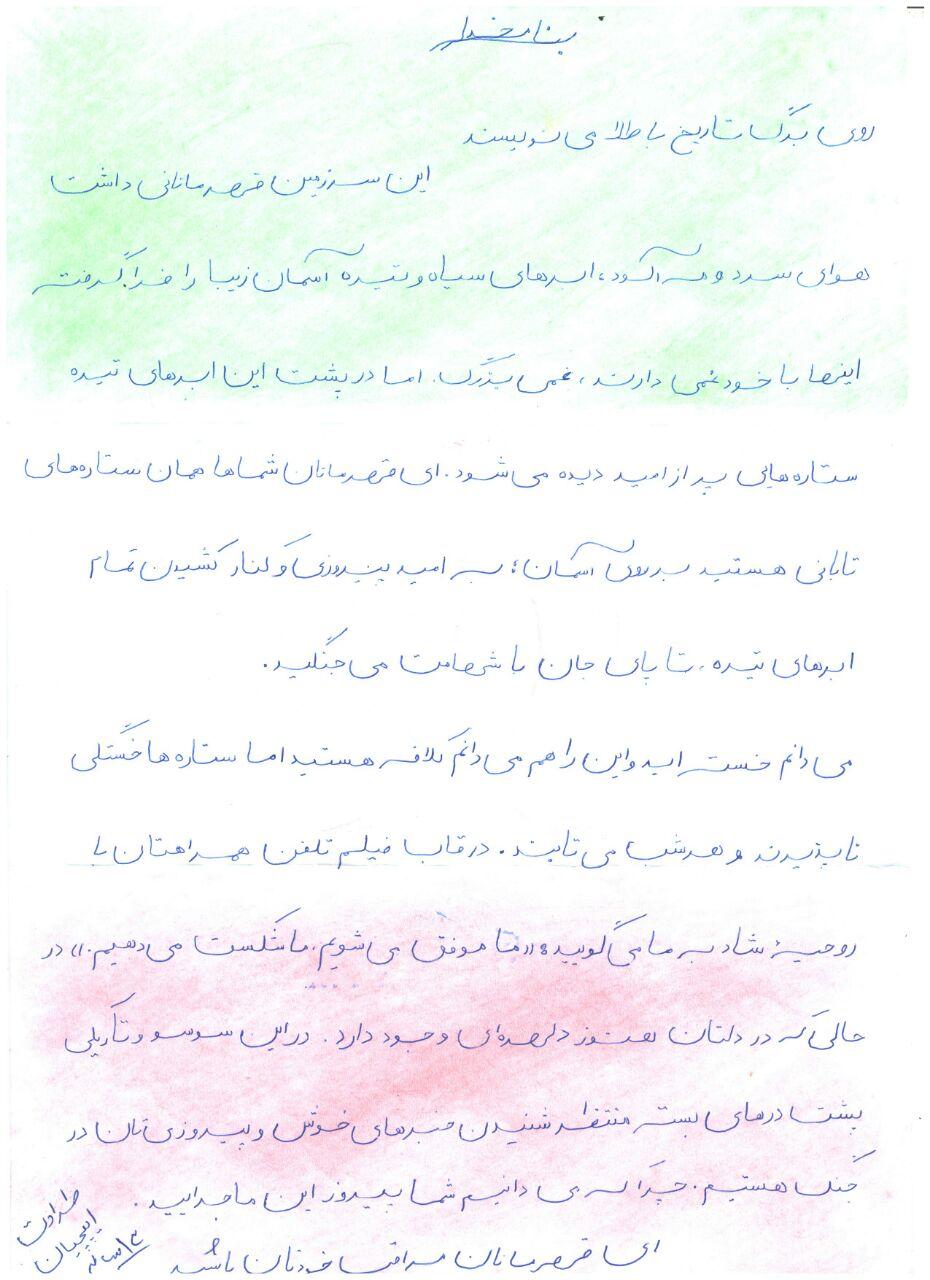 بنام خدا
روی برگ تاریخ با طلا می نویسند
این سرزمین قهرمانانی داشت
هوای سرد و مه آلود، ابرهای سیاه و تیره آسمان زیبا را فرا گرفته
اینها با خود غمی دارند، غمی بزرگ. اما در پشت این ابرهای تیره
ستاره هایی پر از امید دیده می شود. ای قهرمانان شماها همان ستاره های
تابانی هستید بر روی آسمان؛ به امید پیروزی و کنار کشیدن تمام
ابرهای تیره، تا پای جان با شهامت می جنگید.
می دانم خسته اید و این را هم می دانم کلافه هستید اما ستاره ها خستگی
ناپذیرند و هر شب می تابند. در قاب فیلم تلفن همراهتان با
روحیهٔ شاد به ما می گویید: «ما موفق می شویم، ما شکست می دهیم.» در
حالی که در دلتان هنوز دلهره ای وجود دارد. در این سوسو و تاریکی
پشت درهای بسته منتظر شنیدن خبرهای خوش و پیروزی تان در
جنگ هستیم. چرا که می دانیم شما پیروز این ماجرایید.
ای قهرمانان مراقب خودتان باشید
طراوت
۱۳ ساله